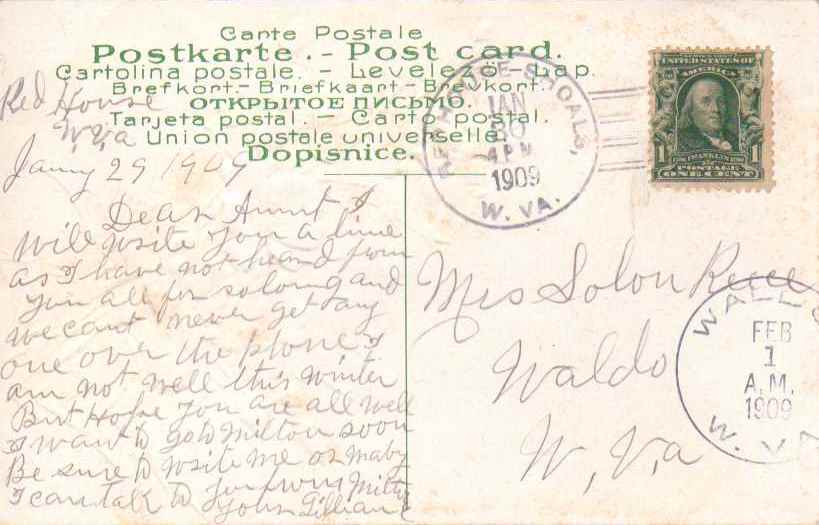 Carte Postale
Postkarte. - Post card.
Cartolina postale. - Levelezö-Lap.
Brefkort.- Briefkaart- Brevkort.
ОТКРЫТОЕ ПИСЬМО.
Tarjeta postal. - Carto postal.
Union postale universelle.
Dopisnice.
Red House
W.Va
Janny 29 1909
Dear Aunnt I
will write you a line
as I have not heard from
you all for so long and
we cant never get any
one over the phone I
am not well this winter
But Hope you are all well
I want to go to Milton soon
Be sure to write me or maby
I can talk to you from Milton
Your Lillian
RED HOUSE SHOALS,
JAN
30
4 PM
1909
W. VA.
UNITED STATES OF
AMERICA
1 FRANKLIN 1
POSTAGE
ONE CENT
Mrs Solon
Waldo
W, Va
FEB
1
A.M.
1909
W. VA